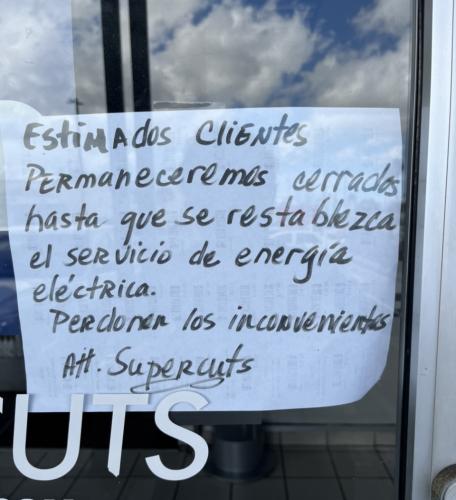 Estimados Clientes
Permaneceremos cerrados
hasta que se restablezca
el servicio de energía
eléctrica.
Perdonen los inconvenientes
Att. Supercuts
CUTS